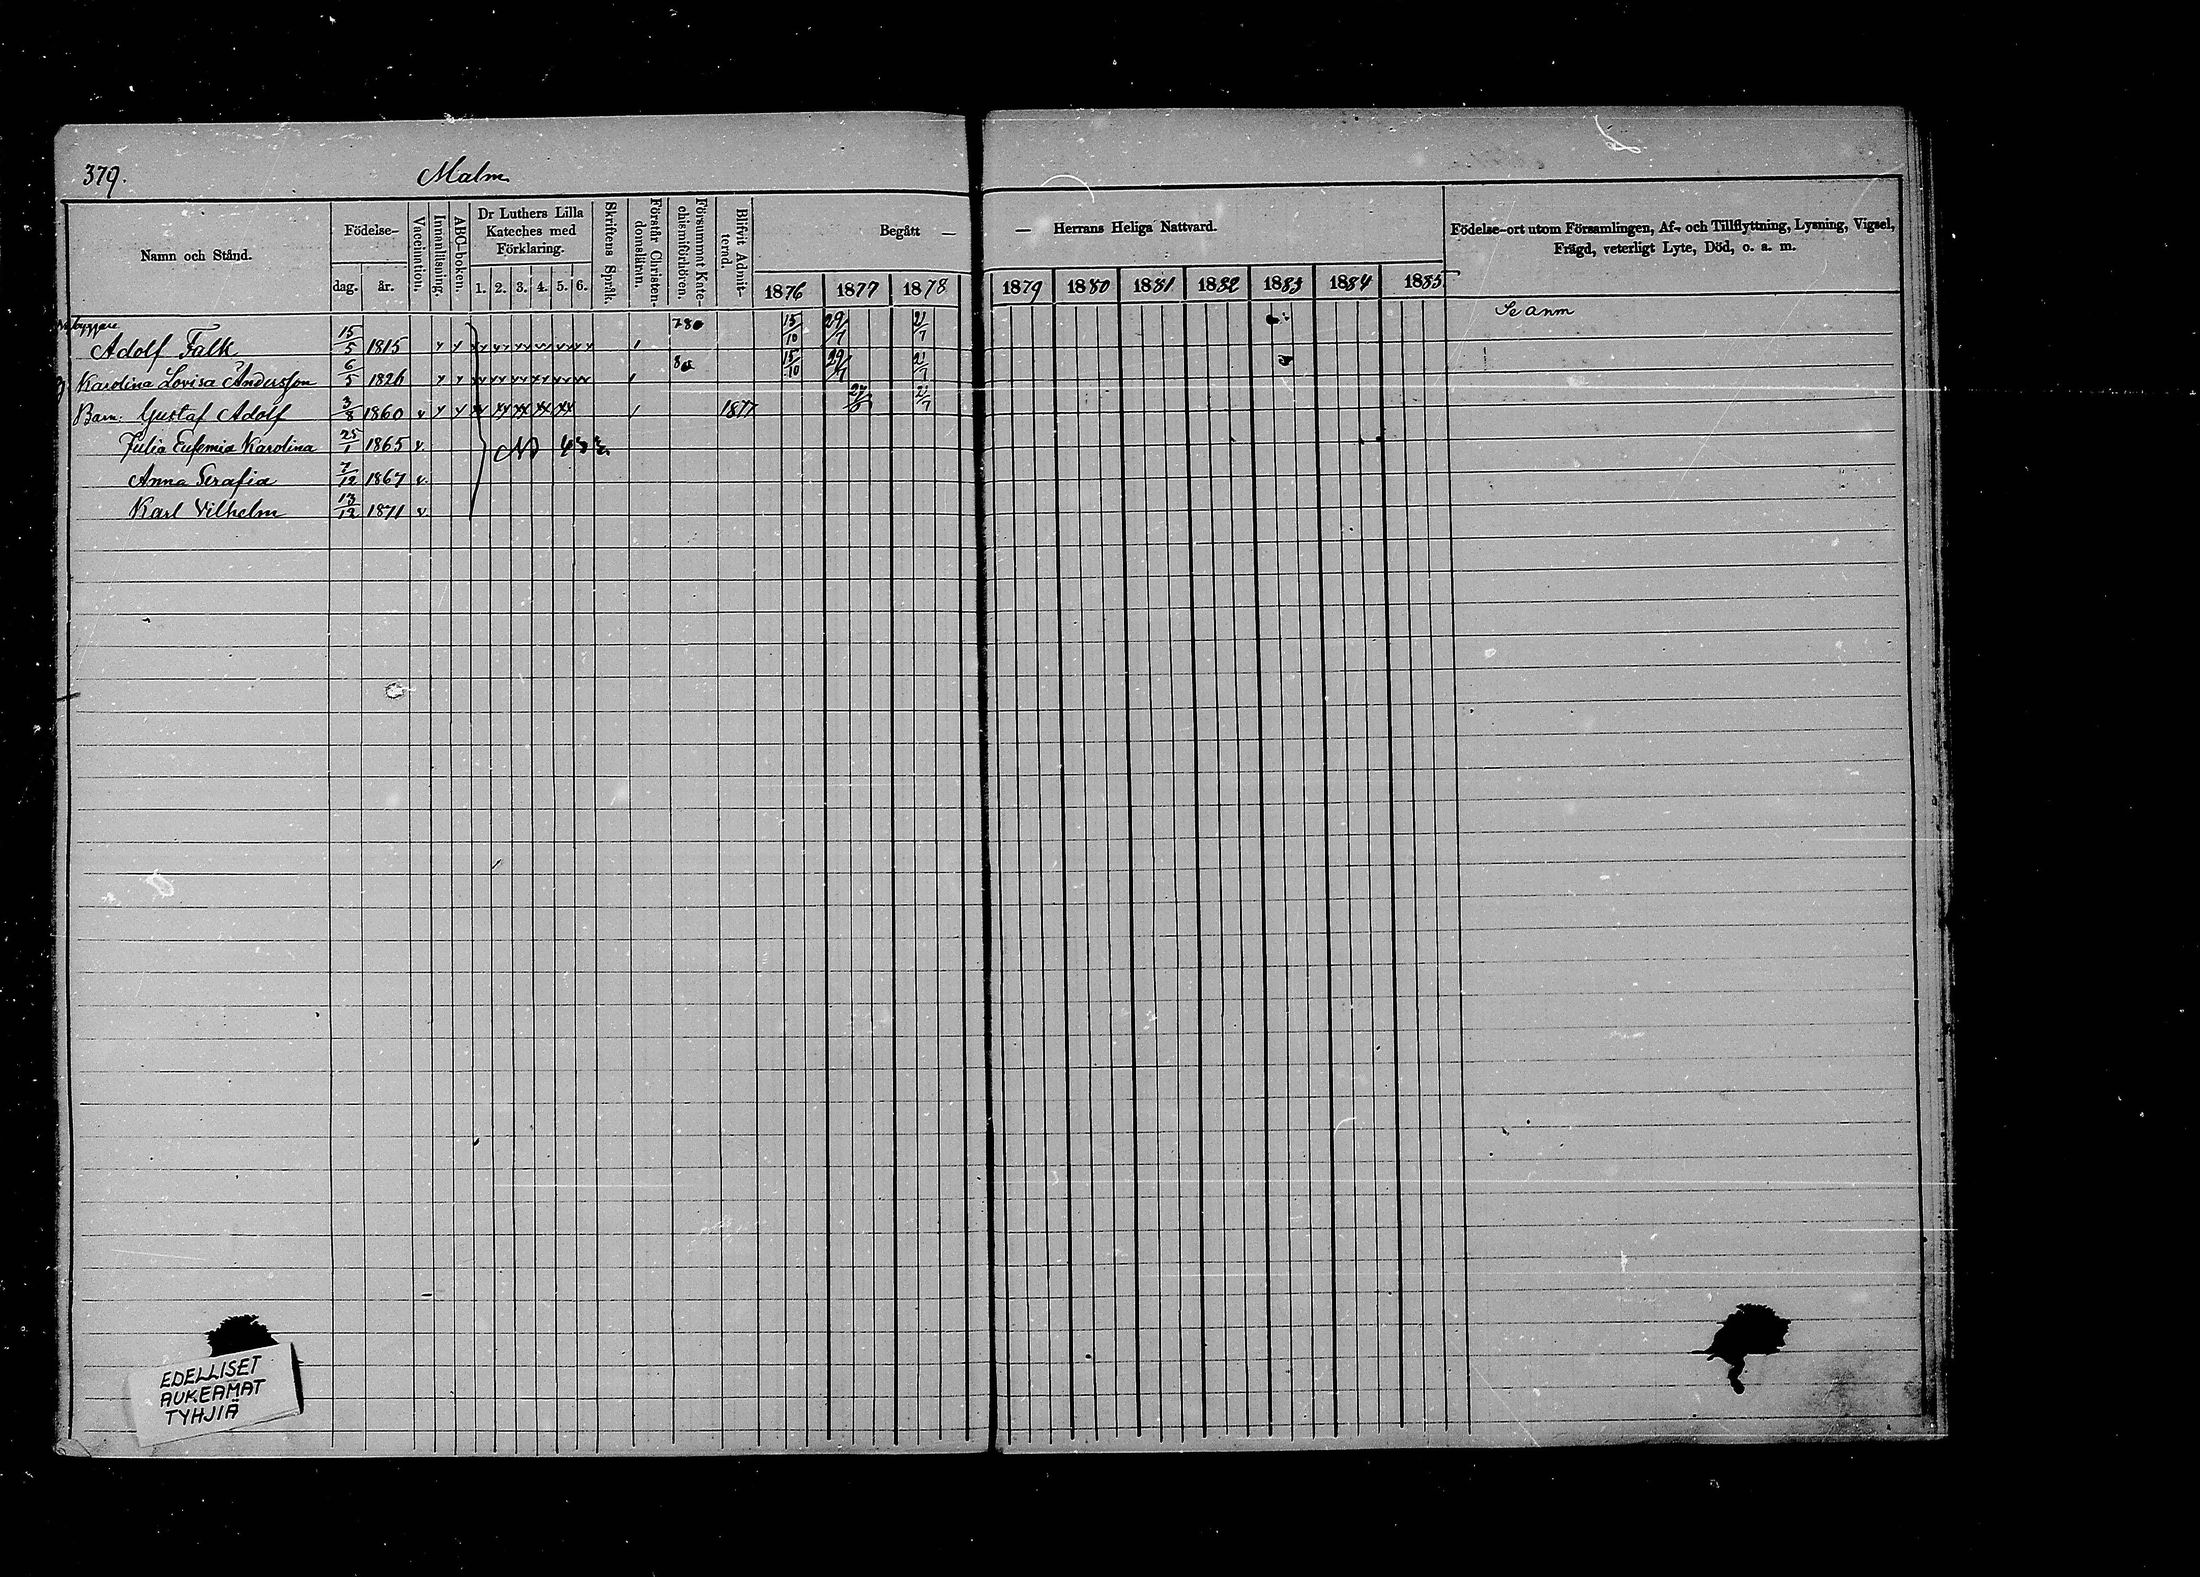 379. Malm
Namn och Stånd.
Födelse-
dag. år.
Vaccination.
Innanläsning.
ABC-boken.
Dr Luthers Lilla
Kateches med
Förklaring.
1. 2. 3. 4. 5. 6.
Skriftens Språk.
Förstår Christen-
domsläran.
Försummat Kate-
chismiförhören.
Blifvit Admit-
terad.
Begått — — Herrans Heliga Nattvard.
1876 1877 1878 1879 1880 1881 1882 1883 1884 1885
Födelse-ort utom Församlingen, Af- och Tillflyttning, Lysning, Vigsel,
Frägd, veterligt Lyte, Död, o. a. m.
Adolf Falk 15/5 1815 15/10 29/7 21/7 Se anm
Karolina Lovisa Andersson 6/5 1826 15/10 29/7 21/7
Barn: Gustaf Adolf 3/8 1860 v 1877 21/7
Julia Eufemia Karolina 25/1 1865 v.
Anna Serafia 7/12 1867 v.
Karl Vilhelm 13/12 1871 v
EDELLISET
AUKEAMAT
TYHJIÄ